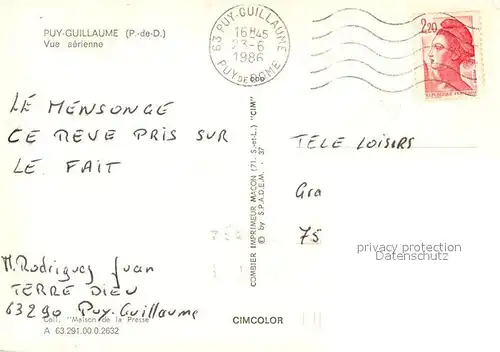 PUY-GUILLAUME (P.-de-D.)
Vue aérienne
63 PUY-GUILLAUME
16H45
23-6
1986
PUY DE DOME
2,20
LE MENSONGE
CE REVE PRIS SUR
LE FAIT
TELE LOISIRS
Gra
75
M. Rodrigues Juan
TERRE DIEU
63290 Puy-Guillaume
Coll. "Maison de la Presse"
A 63.291.00.0.2632
COMBIER IMPRIMEUR MACON (71. S.-et-L.) "CIM"
© by S.P.A.D.E.M. - 37
CIMCOLOR
privacy protection
Datenschutz